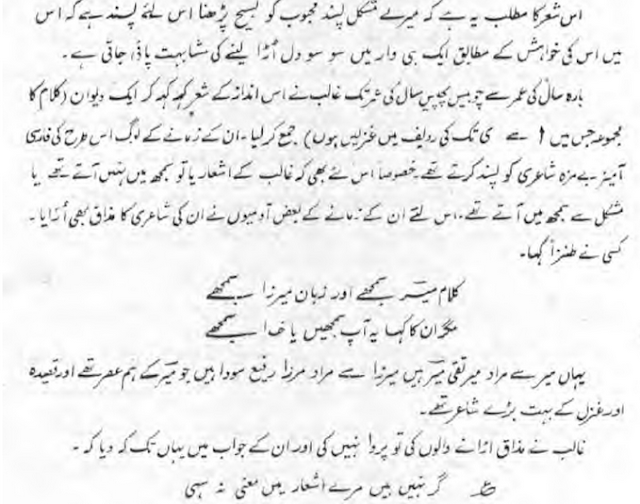 اس شعر کا مطلب یہ ہے کہ میرے مشکل پسند محبوب کو تسبیح پڑھنا اس لئے پسند ہے کہ اس
میں اس کی خواہش کے مطابق ایک ہی وار میں سو سو دل اڑا لینے کی مشابہت پائی جاتی ہے۔
بارہ سال کی عمر سے چوبیس پچیس سال کی عمر تک غالب نے اس انداز کے شعر کہہ کہہ کر ایک دیوان (کلام کا
مجموعہ جس میں ا سے ی تک کی ردیف میں غزلیں ہوں) جمع کر لیا۔ ان کے زمانے کے لوگ اس طرح کی فارسی
آمیز بے مزہ شاعری کو پسند کرتے تھے خصوصاً اس لئے بھی کہ غالب کے اشعار یا تو سمجھ میں نہیں آتے تھے یا
مشکل سے سمجھ میں آتے تھے۔ اس لئے ان کے زمانے کے بعض آدمیوں نے ان کی شاعری کا مذاق بھی اُڑایا۔
کسی نے طنزاً کہا۔
کلام میر سمجھے اور زبان میرزا سمجھے
مگر ان کا کہا یہ آپ سمجھیں یا خدا سمجھے
یہاں میر سے مراد میر تقی میر ہیں میرزا سے مراد مرزا رفیع سودا ہیں جو میر کے ہم عصر تھے اور قصیدہ
اور غزل کے بہت بڑے شاعر تھے۔
غالب نے مذاق اڑانے والوں کی تو پروا نہیں کی اور ان کے جواب میں یہاں تک کہ دیا کہ۔
گر نہیں ہیں مرے اشعار میں معنی نہ سہی